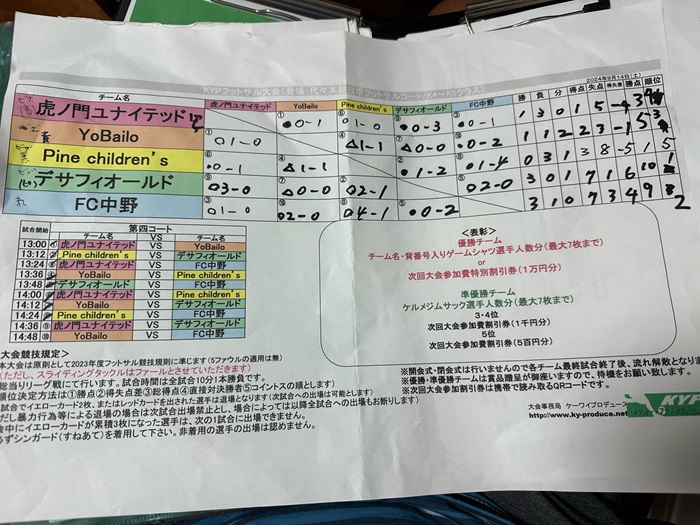 KYPフットサル大会
2024年9月14日(土)
チーム名 虎ノ門ユナイテッド YoBailo Pine children's デサフィオールド FC中野 勝 負 分 得点 失点 得失差 勝点 順位
虎ノ門ユナイテッド ① ●0-1 ⑥ ○1-0 ⑨ ●0-3 ③ ●0-1 1 3 0 1 5 -4 3
YoBailo ① ○1-0 ④ △1-1 ⑦ △0-0 ⑩ ●0-2 1 1 2 2 3 -1 5 3
Pine children's ⑥ ●0-1 ④ △1-1 ② ●1-2 ⑧ ●1-4 0 3 1 3 8 -5 1 5
デサフィオールド ⑨ ○3-0 ⑦ △0-0 ② ○2-1 ⑤ ○2-0 3 0 1 7 1 6 10 1
FC中野 ③ ○1-0 ⑩ ○2-0 ⑧ ○4-1 ⑤ ●0-2 3 1 0 7 3 4 9 2
試合開始 第四コート
チーム名 VS チーム名
13:00 ① 虎ノ門ユナイテッド VS YoBailo
13:12 ② Pine children's VS デサフィオールド
13:24 ③ 虎ノ門ユナイテッド VS FC中野
13:36 ④ YoBailo VS Pine children's
13:48 デサフィオールド VS FC中野
14:00 虎ノ門ユナイテッド VS Pine children's
14:12 YoBailo VS デサフィオールド
14:24 Pine children's VS FC中野
14:36 ⑨ 虎ノ門ユナイテッド VS デサフィオールド
14:48 ⑩ YoBailo VS FC中野
<表彰>
優勝チーム
チーム名・背番号入りゲームシャツ選手人数分(最大7枚まで)
or
次回大会参加費特別割引券(1万円分)
準優勝チーム
ケルメジムサック選手人数分(最大7枚まで)
3・4位
次回大会参加費割引券(1千円分)
5位
次回大会参加費割引券(5百円分)
大会競技規定>
本大会は原則として2023年度フットサル競技規則に準じます(5ファウルの適用は無)
(ただし、スライディングタックルはファールとさせていただきます)
総当りリーグ戦にて行います。試合時間は全試合10分1本勝負です。
順位決定方法は①勝点②得失点差③総得点④直接対決勝者⑤コイントスの順とします)
試合でイエローカード2枚、またはレッドカードを出された選手は退場となります(次試合への出場は可能とします)
だし暴力行為等による退場の場合は次試合出場禁止とし、場合によっては以降全試合への出場もお断りします)
会中にイエローカードが累積3枚になった選手は、次の1試合に出場できません。
必ずシンガード(すねあて)を着用して下さい。非着用の選手の出場は認めません。
※開会式・閉会式は行いませんので各チーム最終試合終了後、流れ解散となりま
※優勝・準優勝チームは賞品贈呈が御座いますので、待機をお願い致します。
※次回大会参加費割引券は携帯で読み取るQRコードです。
大会事務局 ケーワイプロデュース
http://www.ky-produce.net
KYP